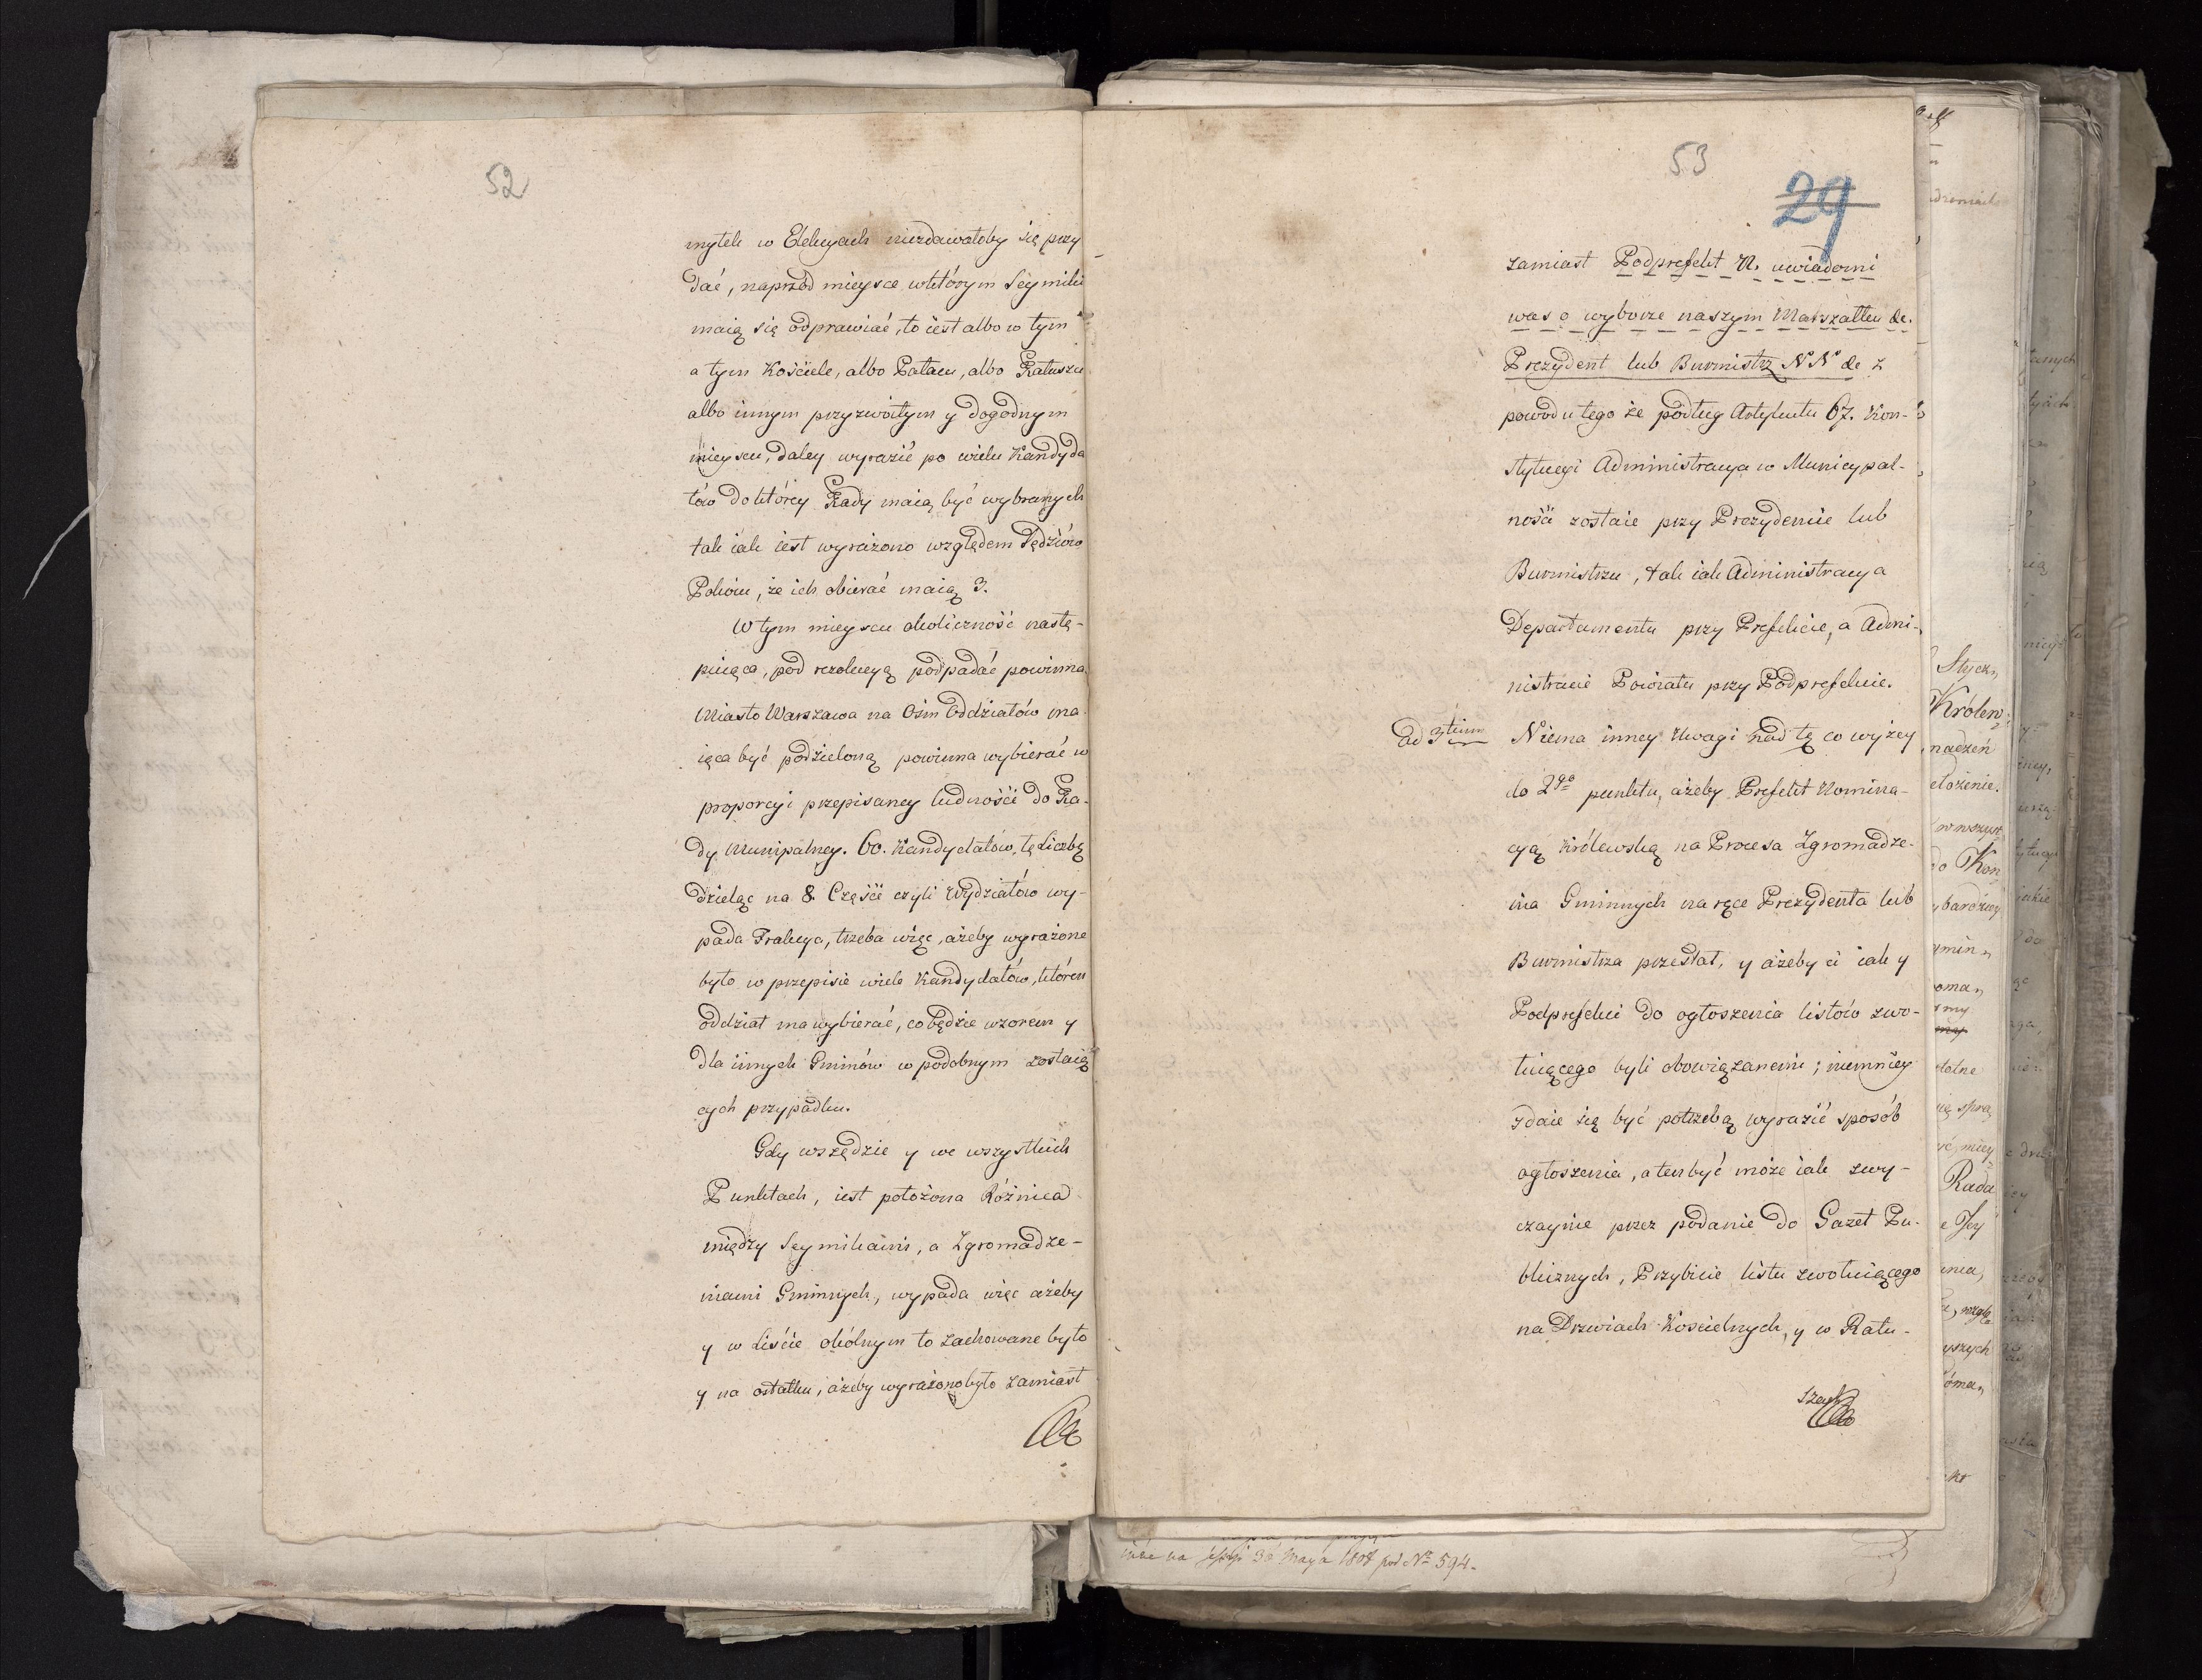 52
mytek w Elekcyach niezdawałoby się przy
dać, naprzód mieysce wktórym Seymiki
maią się odprawiać, to iest albo w tym
a tym Kościele, albo Pałacu, albo Ratuszu
albo innym przyzwoitym y dogodnym
mieyscu, daley wyrazić po wielu Kandyda
tów do którey Rady maią być wybranych
tak iak iest wyrażono względem Sędziów
Pokoiu, że ich obierać maią 3.
W tym mieyscu okoliczność nastę-
puiąca, pod rezolucyą podpadać powinna
Miasto Warszawa na Ośm Oddziałów ma
iąca być podzieloną powinna wybierać w
proporcyi przepisaney ludności do Ra-
dy Municypalney. 60. Kandydatów, tę Liczbę
dzieląc na 8. Części czyli Wydziałów wy-
pada Frakcya, trzeba więc, ażeby wyrażone
było w przepisie wiele Kandydatów, któren
oddział ma wybierać, co będzie wzorem y
dla innych Gminów w podobnym zostaią
cych przypadku.
Gdy wszędzie y we wszystkich
Punktach, iest położona Różnica
między Seymikami, a Zgromadze-
niami Gminnych, wypada więc ażeby
y w Liście okólnym to zachowane było
y na ostatku, ażeby wyrażono było zamiast
53
29
zamiast Podprefekt N. uwiadomi
was o wyborze naszym Marszałku &c.
Prezydent lub Burmistrz NN &c z
powodu tego że podług Artykułu 67. Kon-
stytucyi Administracya w Municypal-
ności zostaie przy Prezydencie lub
Burmistrzu, tak iak Administracya
Departamentu przy Prefekcie, a Admi-
nistracie Powiatu przy Podprefekcie.
ad 3tium Niema inney Uwagi nad tę co wyżey
do 2go punktu, ażeby Prefekt Nomina-
cyą Królewską na Prezesa Zgromadze-
nia Gminnych na ręce Prezydenta lub
Burmistrza przesłał, y ażeby ci iak y
Podprefekci do ogłoszenia listów zwo-
łuiącego byli obowiązanemi; niemniey
zdaie się być potrzebą wyrazić sposób
ogłoszenia, a ten być może iak zwy-
czaynie przez podanie do Gazet Pu-
blicznych, Przybicie listu zwołuiącego
na Drzwiach Kościelnych, y w Ratu-
szach